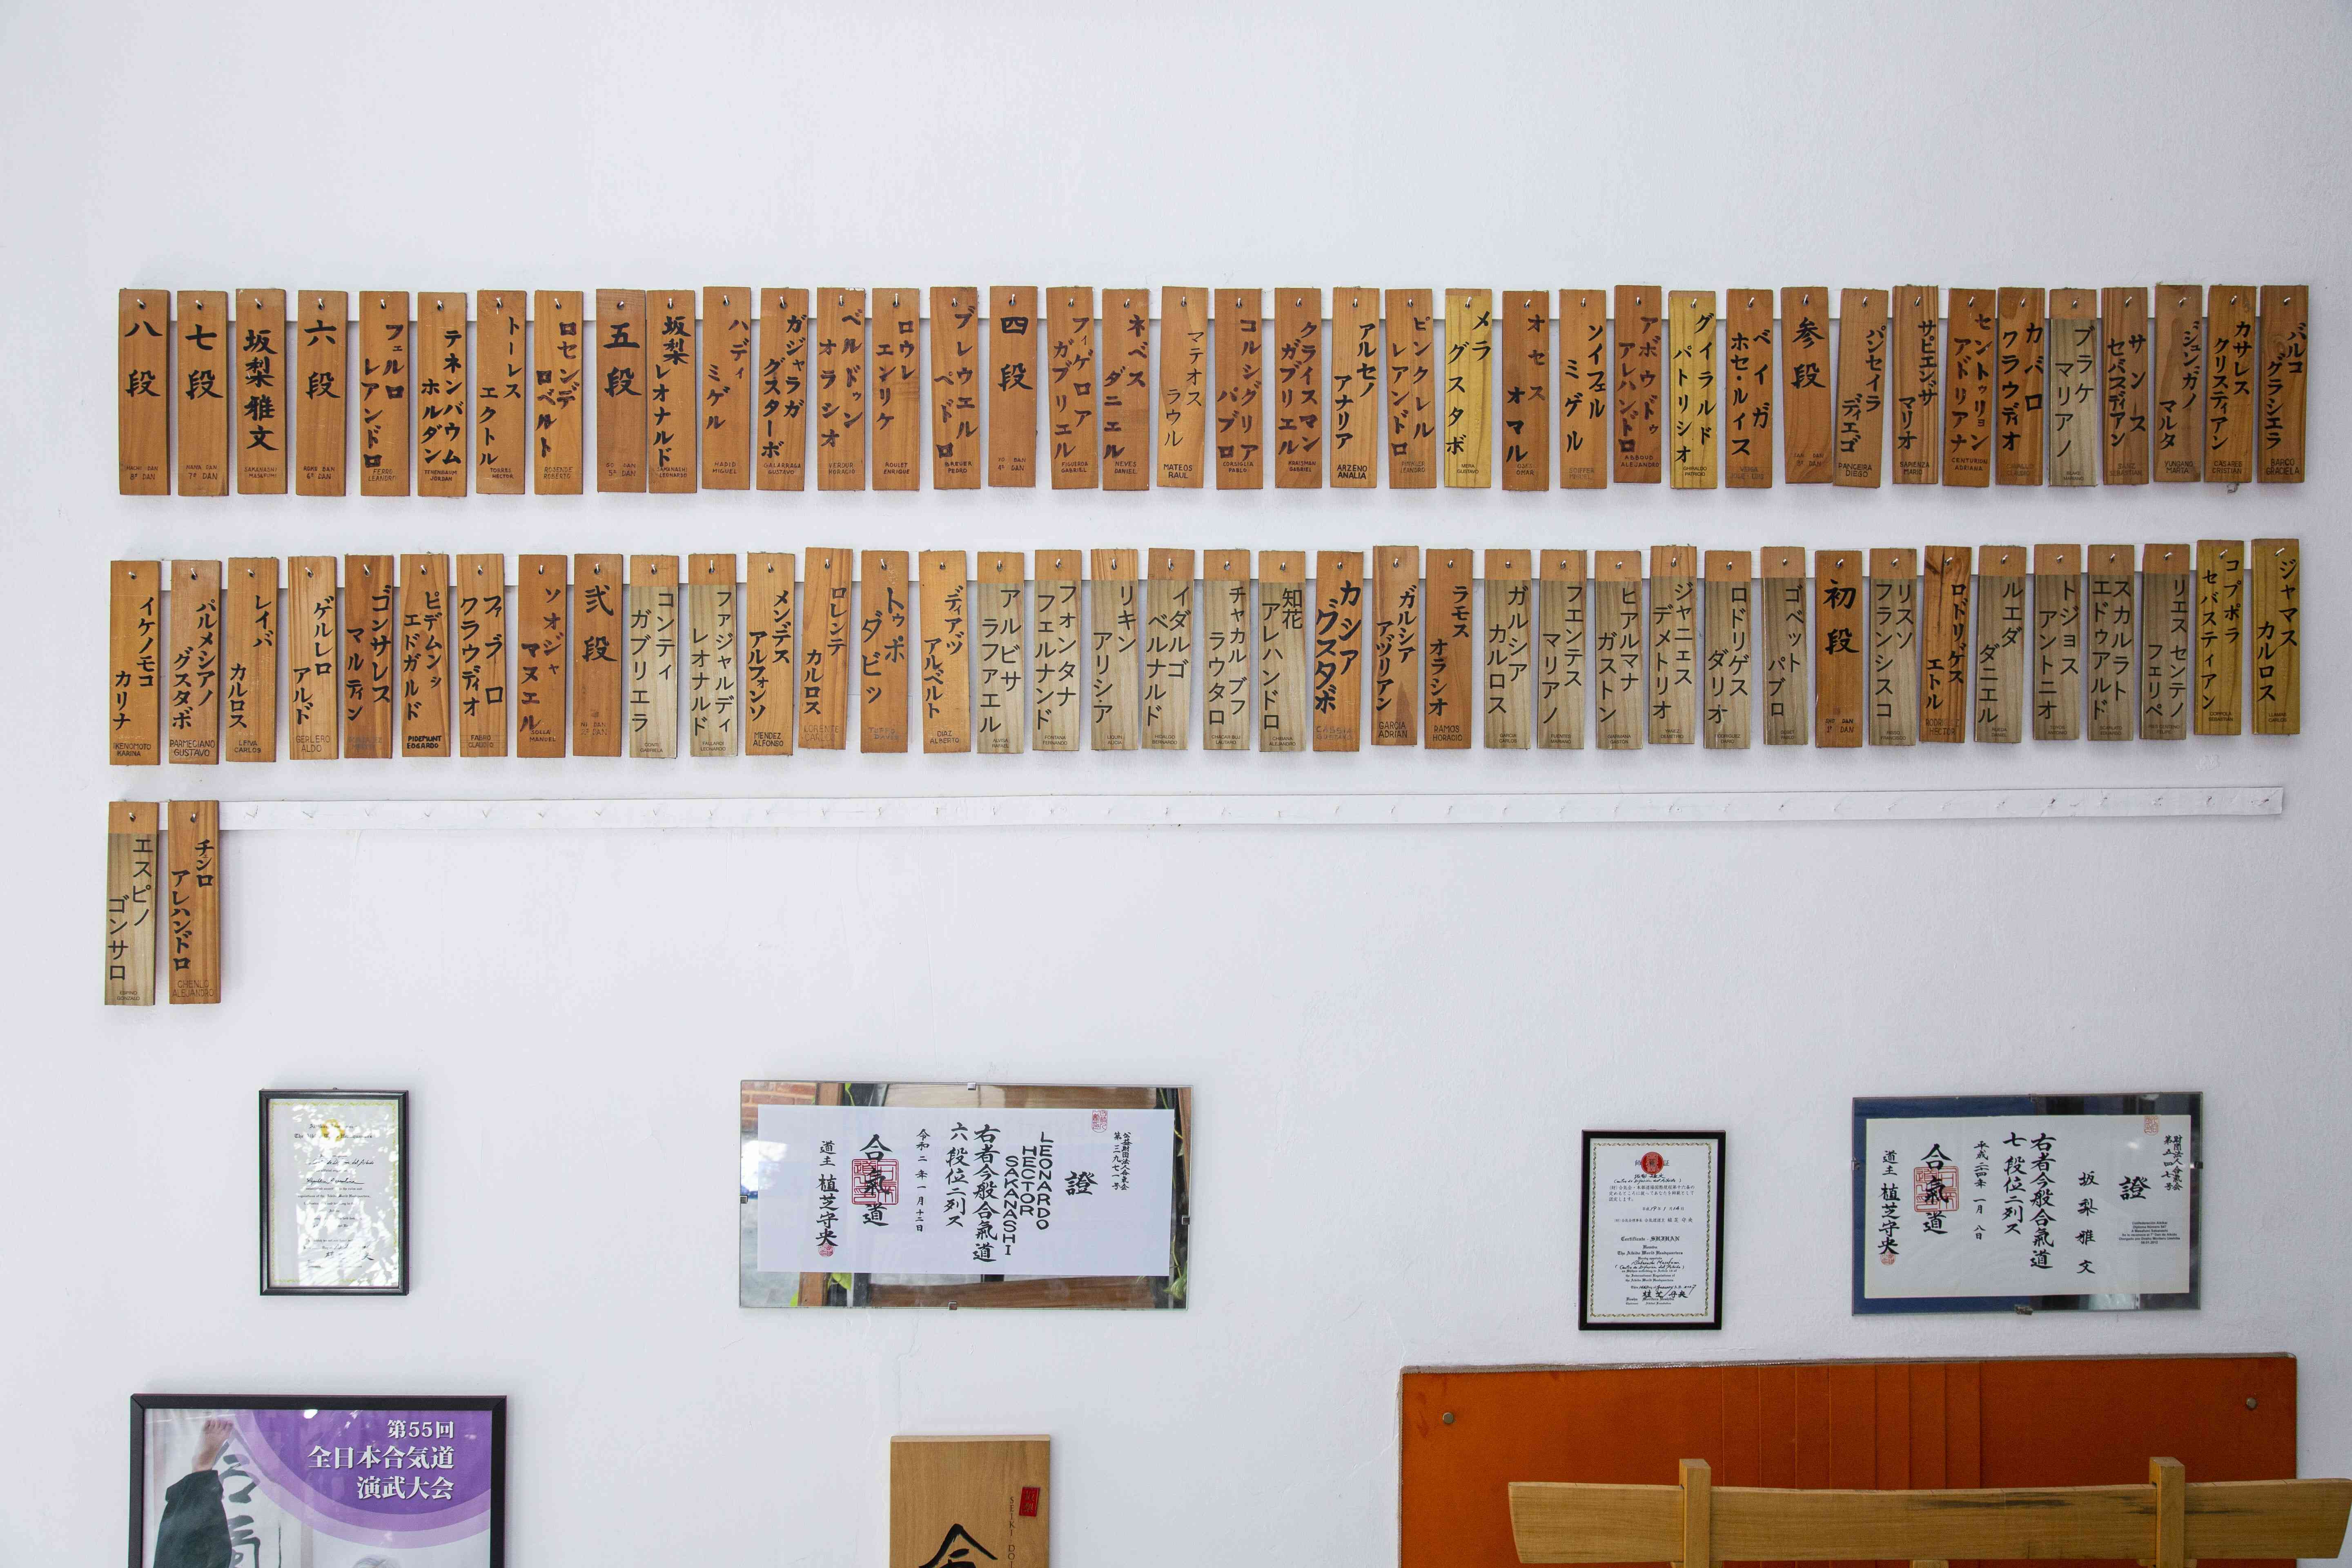 八段
HACHI DAN
8º DAN
七段
NANA DAN
7º DAN
坂梨雅文
SAKANASHI
MASAFUMI
六段
ROKU DAN
6º DAN
フェルロ
レアンドロ
FERRO
LEANDRO
テネンバウム
ホルダン
TENENBAUM
JORDAN
トーレス
エクトル
TORRES
HECTOR
ロセンデ
ロベルト
ROSENDE
ROBERTO
五段
GO DAN
5º DAN
坂梨
レオナルド
SAKANASHI
LEONARDO
ハディ
ミゲル
HADID
MIGUEL
ガジャラガ
グスターボ
GALARRAGA
GUSTAVO
ベルドゥン
オラシオ
VERDUN
HORACIO
ロウレ
エンリケ
ROULET
ENRIQUE
ブレウエル
ペドロ
BREUER
PEDRO
四段
YO DAN
4º DAN
フィゲロア
ガブリエル
FIGUEROA
GABRIEL
ネベス
ダニエル
NEVES
DANIEL
マテオス
ラウル
MATEOS
RAUL
コルシグリア
パブロ
CORSIGLIA
PABLO
クライスマン
ガブリエル
KRAISMAN
GABRIEL
アルセノ
アナリア
ARZENO
ANALIA
ピンクレル
レアンドロ
LEANDRO
メラ
グスタボ
MERA
GUSTAVO
オセス
オマル
OSES
OMAR
ソイフェル
ミゲル
SOIFFER
MIGUEL
アボウドゥ
アレハンドロ
ABBOUD
ALEJANDRO
グイラルド
パトリシオ
GHIRALDO
PATRICIO
ベイガ
ホセ・ルイス
VEIGA
JOSE LUIS
参段
SAN DAN
3º DAN
パンセイラ
ディエゴ
PANCEIRA
DIEGO
サピエンザ
マリオ
SAPIENZA
MARIO
セントゥリョン
アドリアナ
CENTURION
ADRIANA
カバロ
クラウディオ
CLAUDIO
ブラケ
マリアノ
サンス
セバスディアン
SEBASTIAN
ジュンガノ
マルタ
YUNGANO
MARTA
カサレス
クリスティアン
CASARES
CRISTIAN
バルコ
グラシエラ
BARCO
GRACIELA
イケノモコ
カリナ
IKENOMOTO
KARINA
パルメシアノ
グスタボ
PARMEGIANO
GUSTAVO
レイバ
カルロス
LEIVA
CARLOS
ゲルレロ
アルド
GERLERO
ALDO
ゴンサレス
マルティン
ピデムンッ
エドガルド
PIDEMUNT
EDGARDO
ファブロ
クラウディオ
FABRO
CLAUDIO
ソオジャ
マヌエル
SOLLA
MANUEL
弐段
NI DAN
2º DAN
コンティ
ガブリエラ
CONTI
GABRIELA
ファジャルディ
レオナルド
FALLARDI
LEONARDO
メンデス
アルフォンソ
MENDEZ
ALFONSO
ロレンテ
カルロス
LORENTE
CARLOS
トゥポ
ダビッ
ディアヅ
アルベルト
DIAZ
ALBERTO
アルビサ
ラファエル
フォンタナ
フェルナンド
FONTANA
FERNANDO
リキン
アリシア
LIQUIN
ALICIA
イダルゴ
ベルナルド
HIDALGO
BERNARDO
チャカルブフ
ラウタロ
LAUTARO
知花
アレハンドロ
CHIBANA
ALEJANDRO
カシア
グスタボ
CASSIA
GUSTAVO
ガルシア
アヅリアン
GARCIA
ADRIAN
ラモス
オラシオ
RAMOS
HORACIO
ガルシア
カルロス
GARCIA
CARLOS
フエンテス
マリアノ
FUENTES
MARIANO
ヒアルマナ
ガストン
ジャニェス
デメトリオ
YAÑEZ
DEMETRIO
ロドリゲス
ダリオ
RODRIGUEZ
DARIO
ゴベット
パブロ
初段
SHO DAN
1º DAN
リスソ
フランシスコ
ロドリゲス
エトル
RODRIGUEZ
HECTOR
ルエダ
ダニエル
RUEDA
DANIEL
トジョス
アントニオ
スカルラト
エドゥアルド
リエスセンテノ
フェリペ
コプポラ
セバスティアン
COPPOLA
SEBASTIAN
ジャマス
カルロス
LLAMAS
CARLOS
エスピノ
ゴンサロ
ESPINO
GONZALO
チンロ
アレハンドロ
CHENLO
ALEJANDRO
公益財団法人合氣会
第三九七一号
證
LEONARDO
HECTOR
SAKANASHI
右者今般合氣道
六段位二列ス
令和二年一月十二日
合氣道
道主 植芝守央
Certificate - SHIHAN
The Aikido World Headquarters
財団法人合氣会
第五四七号
證
坂梨雅文
右者今般合氣道
七段位二列ス
平成二四年一月八日
合氣道
道主 植芝守央
第55回
全日本合気道
演武大会
合気
合
SEIKI DOJ